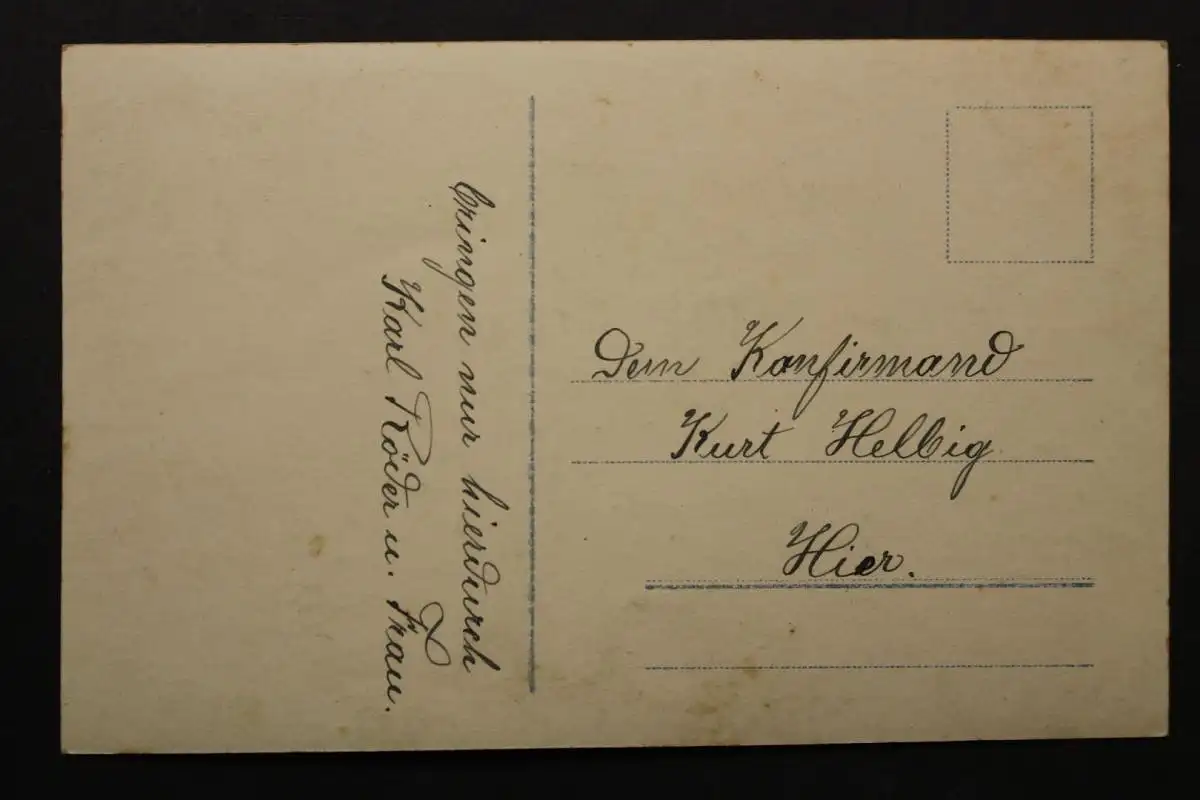 bringen nur hierdurch
Karl Röder u. Frau.
Dem Konfirmand
Kurt Helbig
Hier.